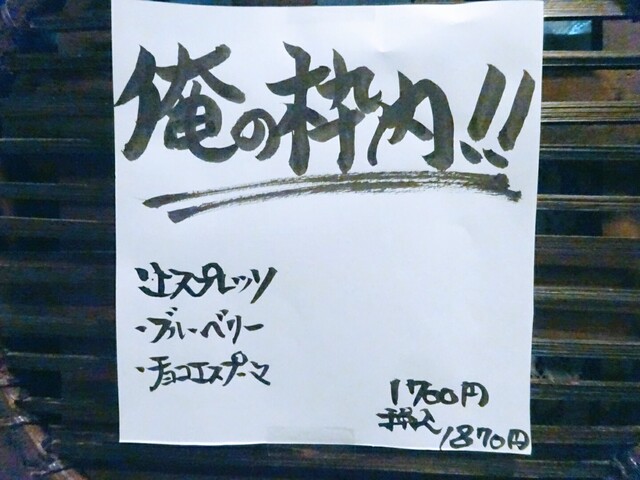 俺の枠内!!
・エスプレッソ
・ブルーベリー
・チョコエスプーマ
1700円
税込
1870円